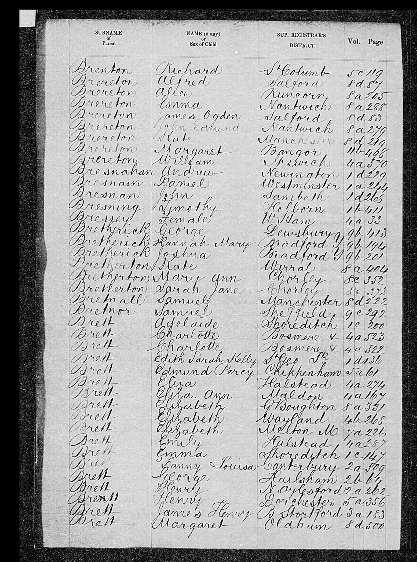 SURNAME of Parent NAME (if any) or Sex of Child SUP. REGISTRAR'S DISTRICT Vol. Page
Brenton Richard St Columb 5c119
Brereton Alfred Salford 8d
Brereton Runcorn 8a
Brereton Emma Nantwich 8a288
Brereton James Ogden Salford 8d53
Brereton John Edward Nantwich 8a279
Brereton Kate 8d
Brereton Margaret Bangor 11b
Brereton William Ipswich 4a
Bresnahan Andrew Newington 1d229
Bresnain Daniel Westminster 1a264
Bresnan John Lambeth 1d265
Bresning Timothy 1b
Bressey Female W. Ham 4a32
Bretherick George Dewsbury 9b413
Bretherick Hannah Mary Bradford Y 9b194
Bretherick Joshua Bradford Y 9b201
Bretherton Kate Wirral 8a404
Bretherton Mary Ann Chorley 8e
Bretherton Sarah Jane Chorley 8e
Bretnall Samuel Manchester 8d222
Bretnor Samuel Sheffield 9c292
Brett Adelaide Shoreditch 1c200
Brett Charlotte Bosmere &c 4a523
Brett Charlotte Bosmere &c 4a
Brett Edith Sarah Kelly St Geo 1d
Brett Edmund Percy Chippenham 5a61
Brett Eliza Halstead 4a274
Brett Eliza Ann Maldon 4a167
Brett Elizabeth C'Boughton 8a331
Brett Elizabeth Wayland 4b265
Brett Elizabeth Melton M. 7a221
Brett Emily Halstead 4a257
Brett Emma Shoreditch 1c147
Brett Fanny Louisa Canterbury 2a509
Brett George Hailsham 2b64
Brett Henry Aylesford 2a262
Brett Henry Dorchester 5a356
Brett James Henry B. Stortford 3a153
Brett Margaret Oldham 8d500